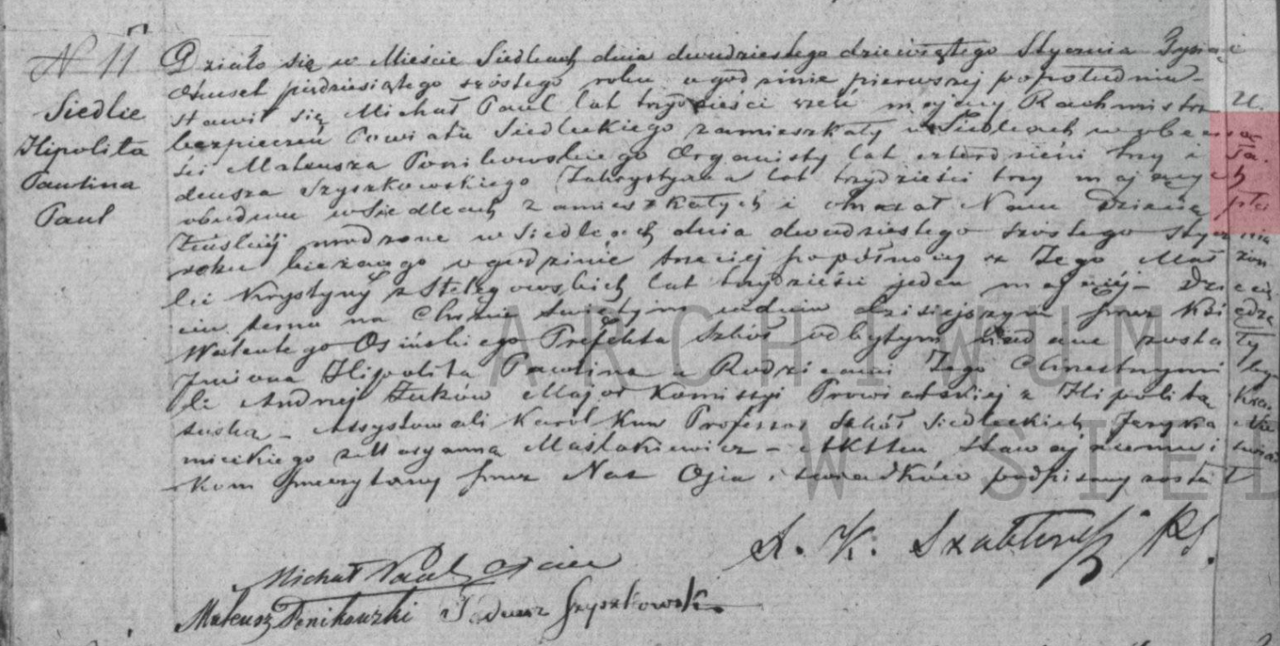 N 11
Siedlce
Hipolita
Paulina
Paul
Działo się w Mieście Siedlcach dnia dwudziestego dziewiątego Stycznia Tysiąc
Ośmset pięćdziesiątego szóstego roku o godzinie pierwszej popołudniu
stawił się Michał Paul lat trzydzieści mający Rachmistrz U.
bezpieczeń Powiatu Siedleckiego zamieszkały w Siedlcach w obecno
ści Mateusza Ponikowskiego Organisty lat czterdzieści trzy i Ta.
deusza Szyszkowskiego Zakrystyana lat trzydzieści trzy mających
obudwu w Siedlcach zamieszkałych i okazał Nam Dziecię płci
Żeńskiej urodzone w Siedlcach dnia dwudziestego szóstego Stycznia
roku bieżącego o godzinie trzeciej popółnocy z Jego Małżon
ki Krystyny z lat trzydzieści jeden mającej Dziecię
ciu temu na Chrzcie Świętym w dniu dzisiejszym przez Księdza
Walentego Osińskiego Prefekta Szkół odbytym nadane zostały
Imiona Hipolita Paulina a Rodzicami Jego Chrzestnymi by
li Andrej Żuków Major Komissyi Prowiantskiej z Hipolitą
Assystowali Karol Kun Professor Szkół Siedleckich Języka Nie
mieckiego z Maryanną Maslakiewicz Akt ten stawającemu i świad
kom przeczytany przez Nas Ojca i świadków podpisany został
X. K. Szabłowski
Michał Paul Ojciec
Mateusz Ponikowski Tadeusz Szyszkowski
ARCHIWUM
W SIED